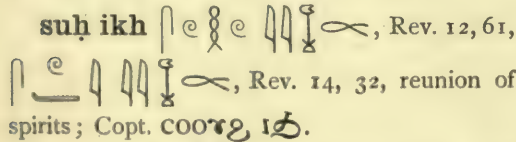 suḥ ikh 𓋴𓏲𓎛𓏲𓇋𓇋, Rev. 12, 61,
𓋴𓏲𓇋𓇋𓇋, Rev. 14, 32, reunion of
spirits; Copt. ⲥⲟⲟⲩϩ ⲓϧ.